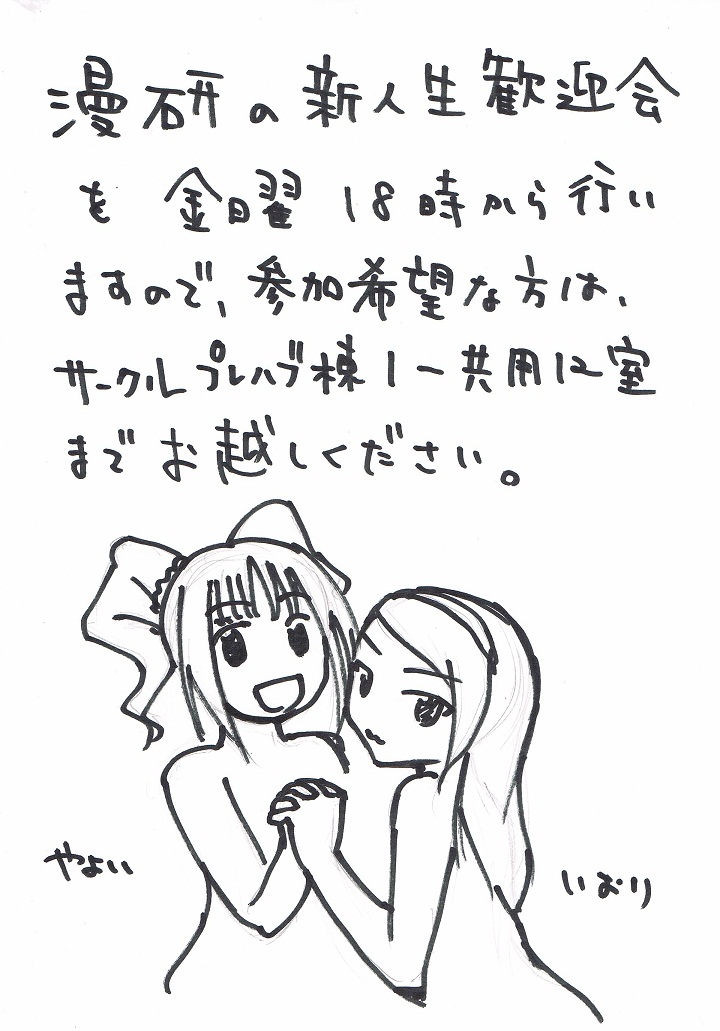 漫研の新人生歓迎会
を金曜18時から行い
ますので、参加希望な方は、
サークルプレハブ棟1-共用12室
までお越しください。
やよい
いおり